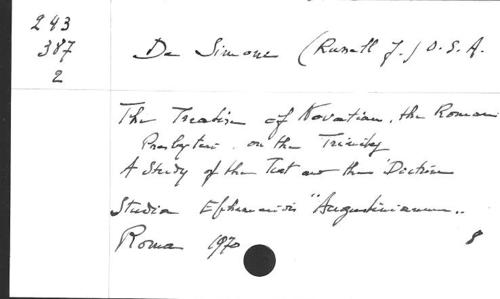 243
387
2
De Simone (Russell J.) O.S.A.
The Treatise of Novatian, the Roman
Presbyter on the Trinity
A Study of the Text and the Doctrine
Studia Ephemeridis "Augustinianum"
Roma 1970
8